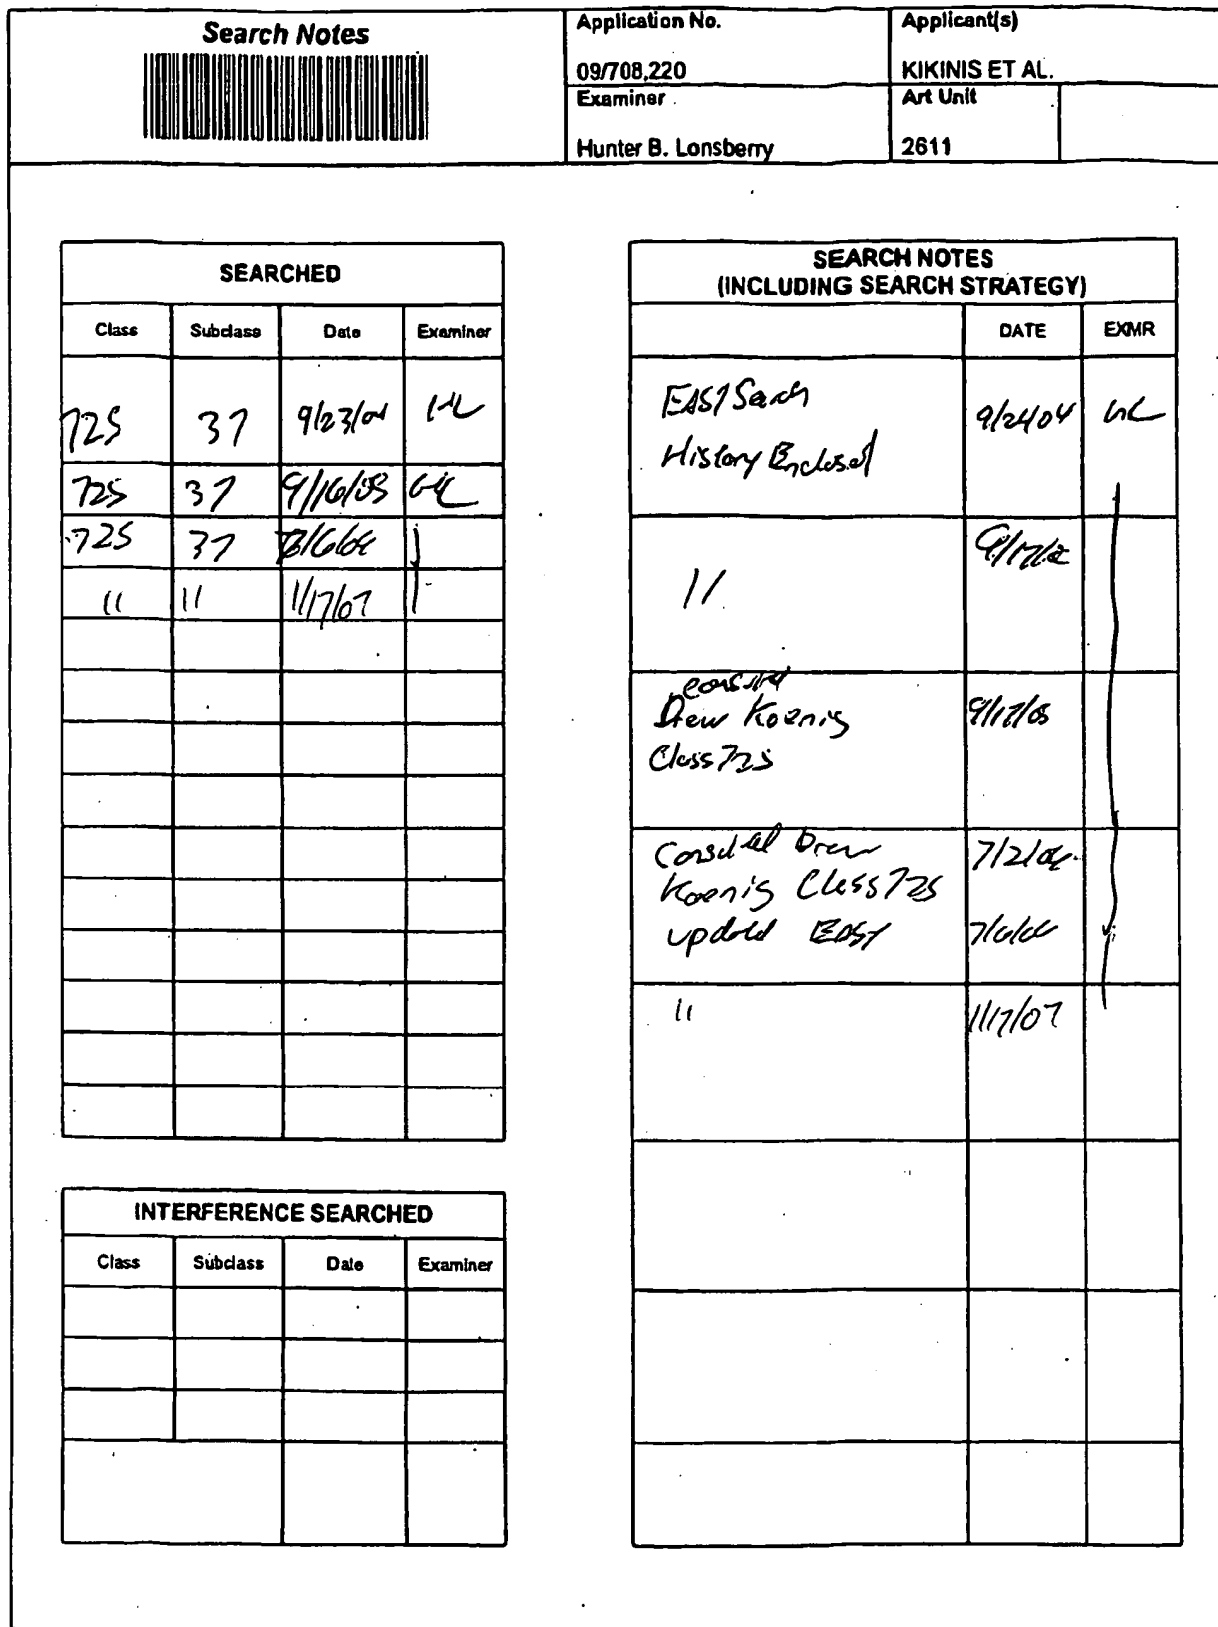 Search Notes
Application No.
09/708,220
Applicant(s)
KIKINIS ET AL.
Examiner
Hunter B. Lonsberry
Art Unit
2611
SEARCHED
Class Subclass Date Examiner
725 37 9/23/04 HL
725 37 9/16/05 HL
725 37
11 11 1/17/07
INTERFERENCE SEARCHED
Class Subclass Date Examiner
SEARCH NOTES
(INCLUDING SEARCH STRATEGY)
DATE EXMR
EAST Search
History Enclosed
9/24/04 HL
11
Drew Koenig
Class 725
9/17/05
Drew 7/2/06
Koenig Class 725
EAST 7/6/06
11 1/17/07